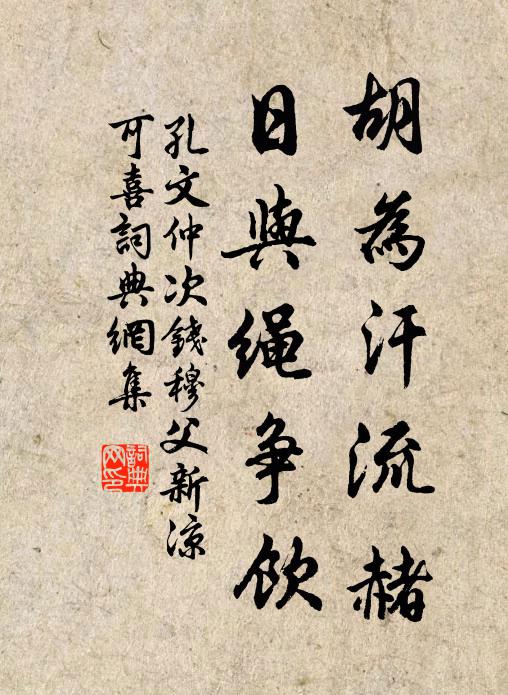 胡為汗流赭
日與繩争飲
孔文仲次錢穆父新涼
可喜詞典網集
詞典網印